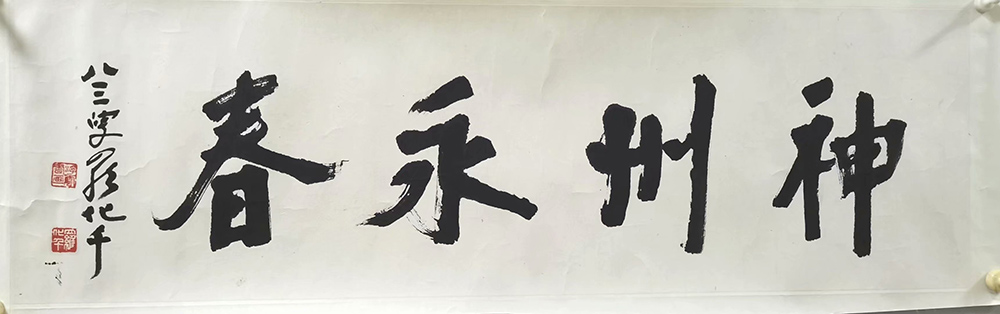 神州永春
八三叟羅化千